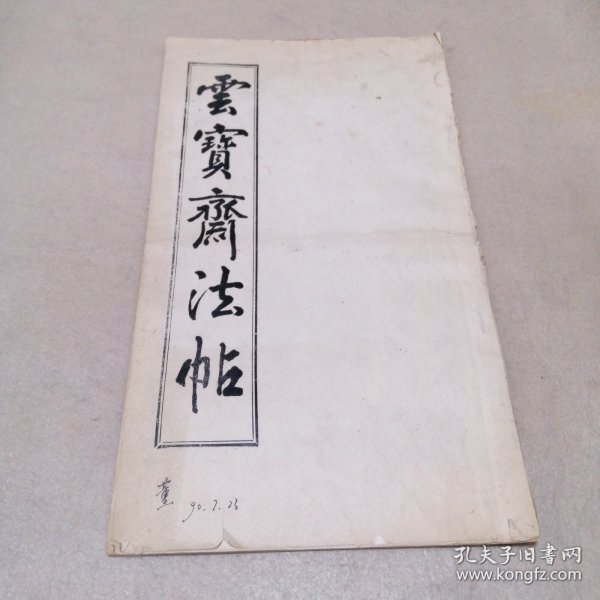 雲寶齋法帖
董 90.7.23
孔夫子旧书网
www.kongfz.com